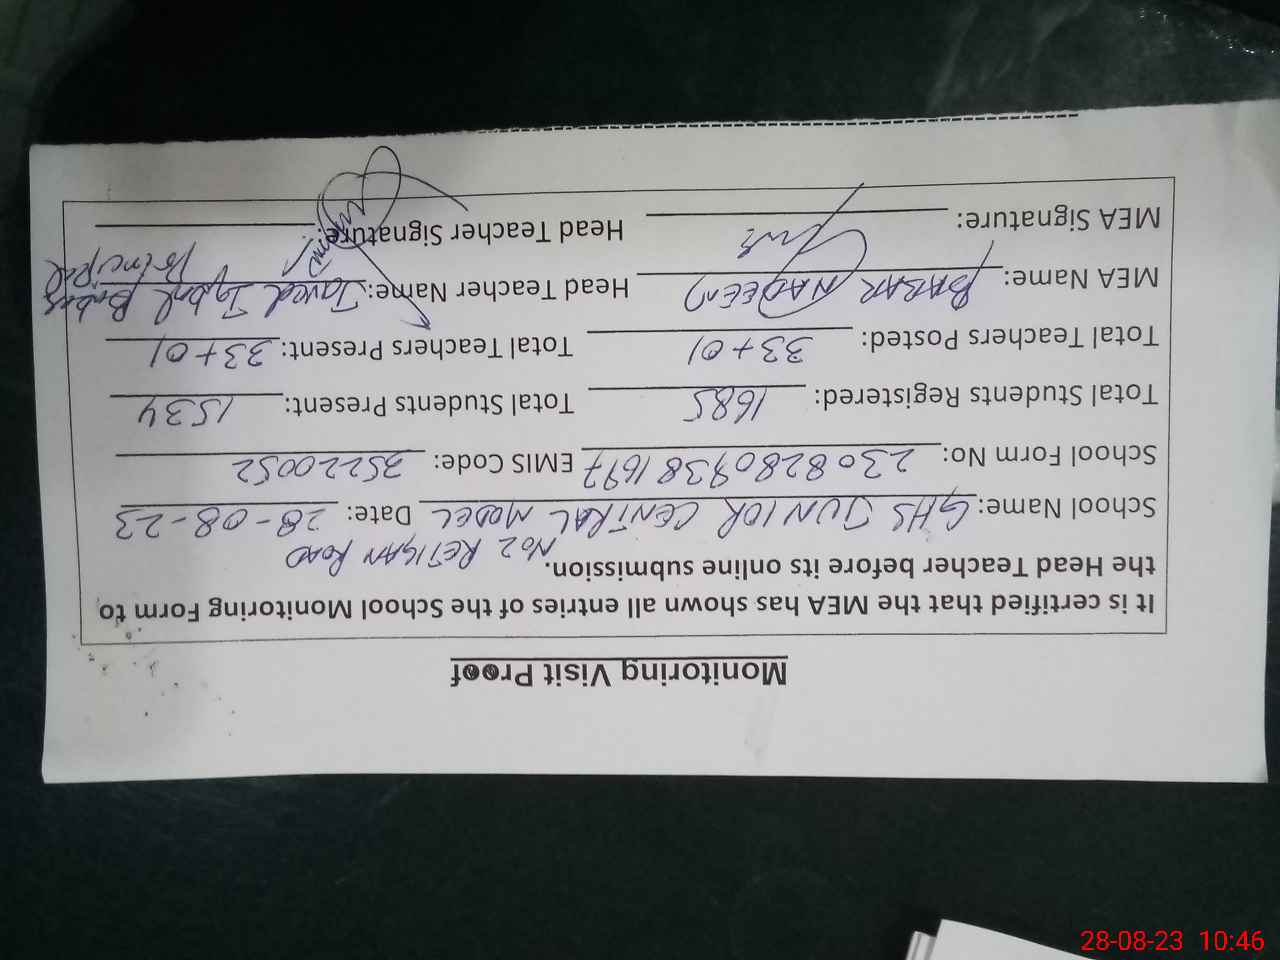 Monitoring Visit Proof
It is certified that the MEA has shown all entries of the School Monitoring Form to
the Head Teacher before its online submission.
No 2 RETIGAN ROAD
School Name: GHS JUNIOR CENTRAL MODEL Date: 28-08-23
School Form No: 2308280938 1697 EMIS Code: 35220052
Total Students Registered: 1685 Total Students Present: 1534
Total Teachers Posted: 33+01 Total Teachers Present: 33+01
MEA Name: BABAR NADEEM Head Teacher Name: Javed Iqbal
Principal
MEA Signature: Head Teacher Signature:
28-08-23 10:46